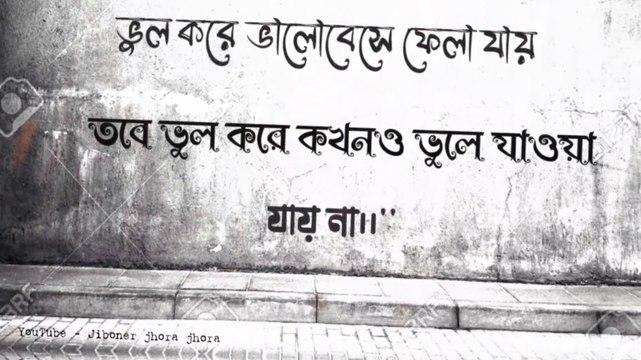 ভুল করে ভালোবেসে ফেলা যায়
তবে ভুল করে কখনও ভুলে যাওয়া
যায় না।।"
YouTube - Jiboner jhora jhora